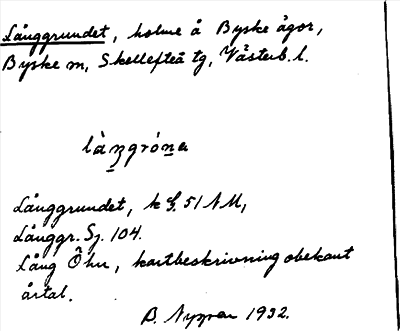 Långgrundet, holme å Byske ågor,
Byske sn, Skellefteå tg, Västerb. l.
Långgrundet, k 51 NM,
Långgr. Sj. 104.
Lång Öhn, kartbeskrivning obekant
årtal.
B. 1932.